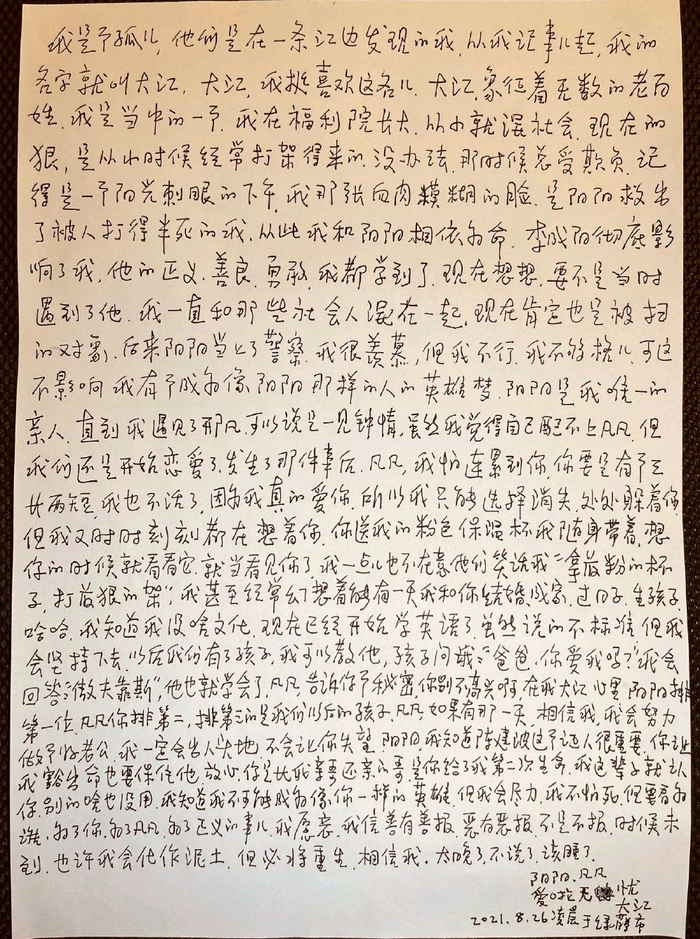 我是个孤儿,他们是在一条江边发现的我.从我记事儿起,我的
名字就叫大江,大江,我挺喜欢这名儿.大江,象征着无数的老百
姓.我是当中的一个.我在福利院长大.从小就混社会.现在的
狠,是从小时候经常打架得来的,没办法.那时候总受欺负.记
得是一个阳光刺眼的下午,我那张血肉模糊的脸.是阳阳救出
了被人打得半死的我.从此我和阳阳相依为命.李成阳彻底影
响了我,他的正义.善良.勇敢,我都学到了.现在想想.要不是当时
遇到了他.我一直和那些社会人混在一起.现在肯定也是被扫
的对象.后来阳阳当上了警察.我很羡慕,但我不行.我不够格儿.可这
不影响我有个成为像阳阳那样的人的英雄梦.阳阳是我唯一的
亲人.直到我遇见了那凡.可以说是一见钟情.虽然我觉得自己配不上凡凡.但
我们还是开始恋爱了.发生了那件事后.凡凡,我怕连累到你.你要是有个三
长两短.我也不活了,因为我真的爱你.所以我只能选择消失.处处躲着你.
但我又时时刻刻都在想着你.你送我的粉色保温杯我随身带着.想
你的时候就看看它.就当看见你了.我一点儿也不在意他们笑话我"拿最粉的杯
子,打最狠的架".我甚至经常幻想着能有一天我和你结婚.成家.过日子.生孩子.
哈哈.我知道我没啥文化.现在已经开始学英语了.虽然说的不标准.但我
会坚持下去.以后我们有了孩子.我可以教他,孩子问我:"爸爸.你爱我吗?"我会
回答:"傲夫靠斯",他也就学会了.凡凡.告诉你个秘密.你别不高兴啊.在我大江心里阳阳排
第一位.凡凡你排第二,排第三的是我们以后的孩子.凡凡如果有那一天.相信我,我会努力
做个好老公.我一定会出人头地.不会让你失望.阳阳.我知道陈建波这个证人很重要.你让
我豁出命也要保住他.放心.你是比我亲哥还亲的哥.是你给了我第二次生命.我这辈子就认
你.别的啥也没用.我知道我不可能成为像你一样的英雄.但我会尽力.我不怕死.但要看为
谁.为了你.为了凡凡.为了正义的事儿.我愿意.我信善有善报.恶有恶报.不是不报.时候未
到.也许我会化作泥土.但必将重生.相信我.太晚了.不说了.该睡了.
阳阳.凡凡
爱啦无忧
大江
2021.8.26凌晨于绿藤市